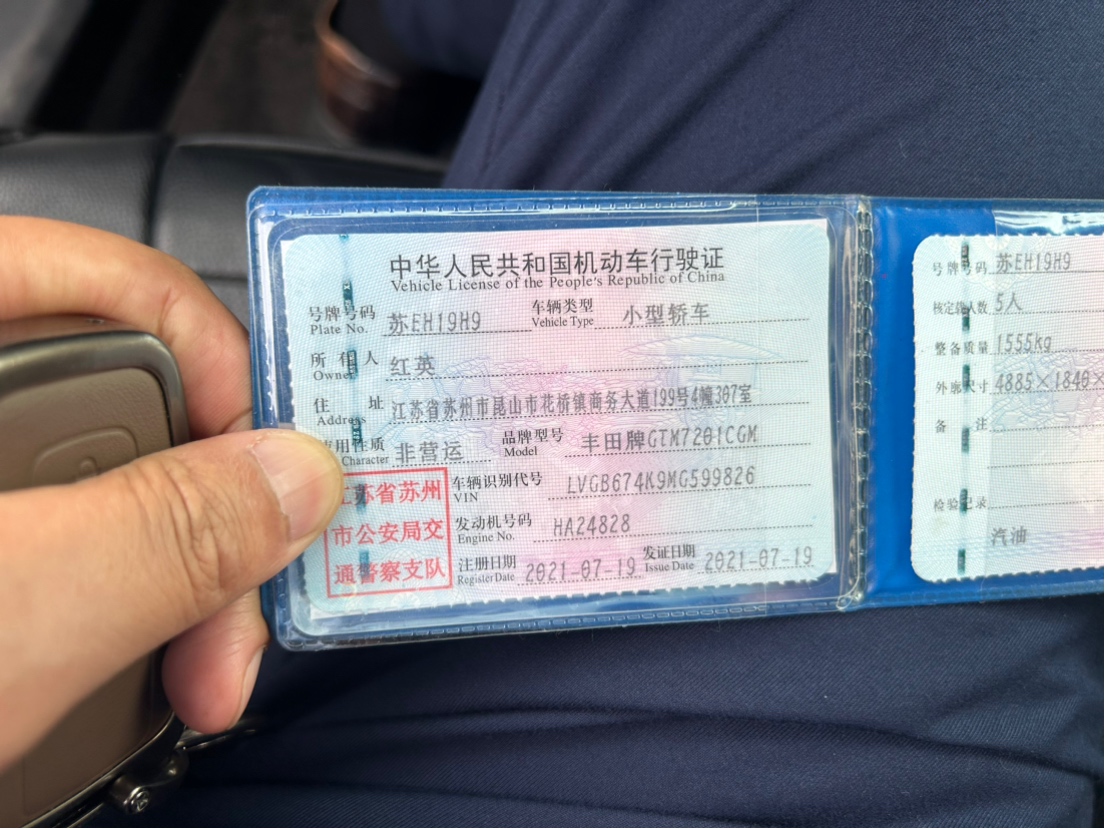 中华人民共和国机动车行驶证
Vehicle License of the People's Republic of China
号牌号码 苏EH19H9 车辆类型 小型轿车
Plate No. Vehicle Type
所有人 红英
Owner
住址 江苏省苏州市昆山市花桥镇商务大道199号4幢307室
Address
用性质 非营运 品牌型号 丰田牌GTM7201CGM
Character Model
江苏省苏州 车辆识别代号 LVGB674K9MG599826
VIN
市公安局交 发动机号码 HA24828
Engine No.
通警察支队 注册日期 2021-07-19 发证日期 2021-07-19
Register Date Issue Date
号牌号码 苏EH19H9
核定载人数 5人
整备质量 1555kg
外廓尺寸 4885×1840×
备注
检验记录
汽油